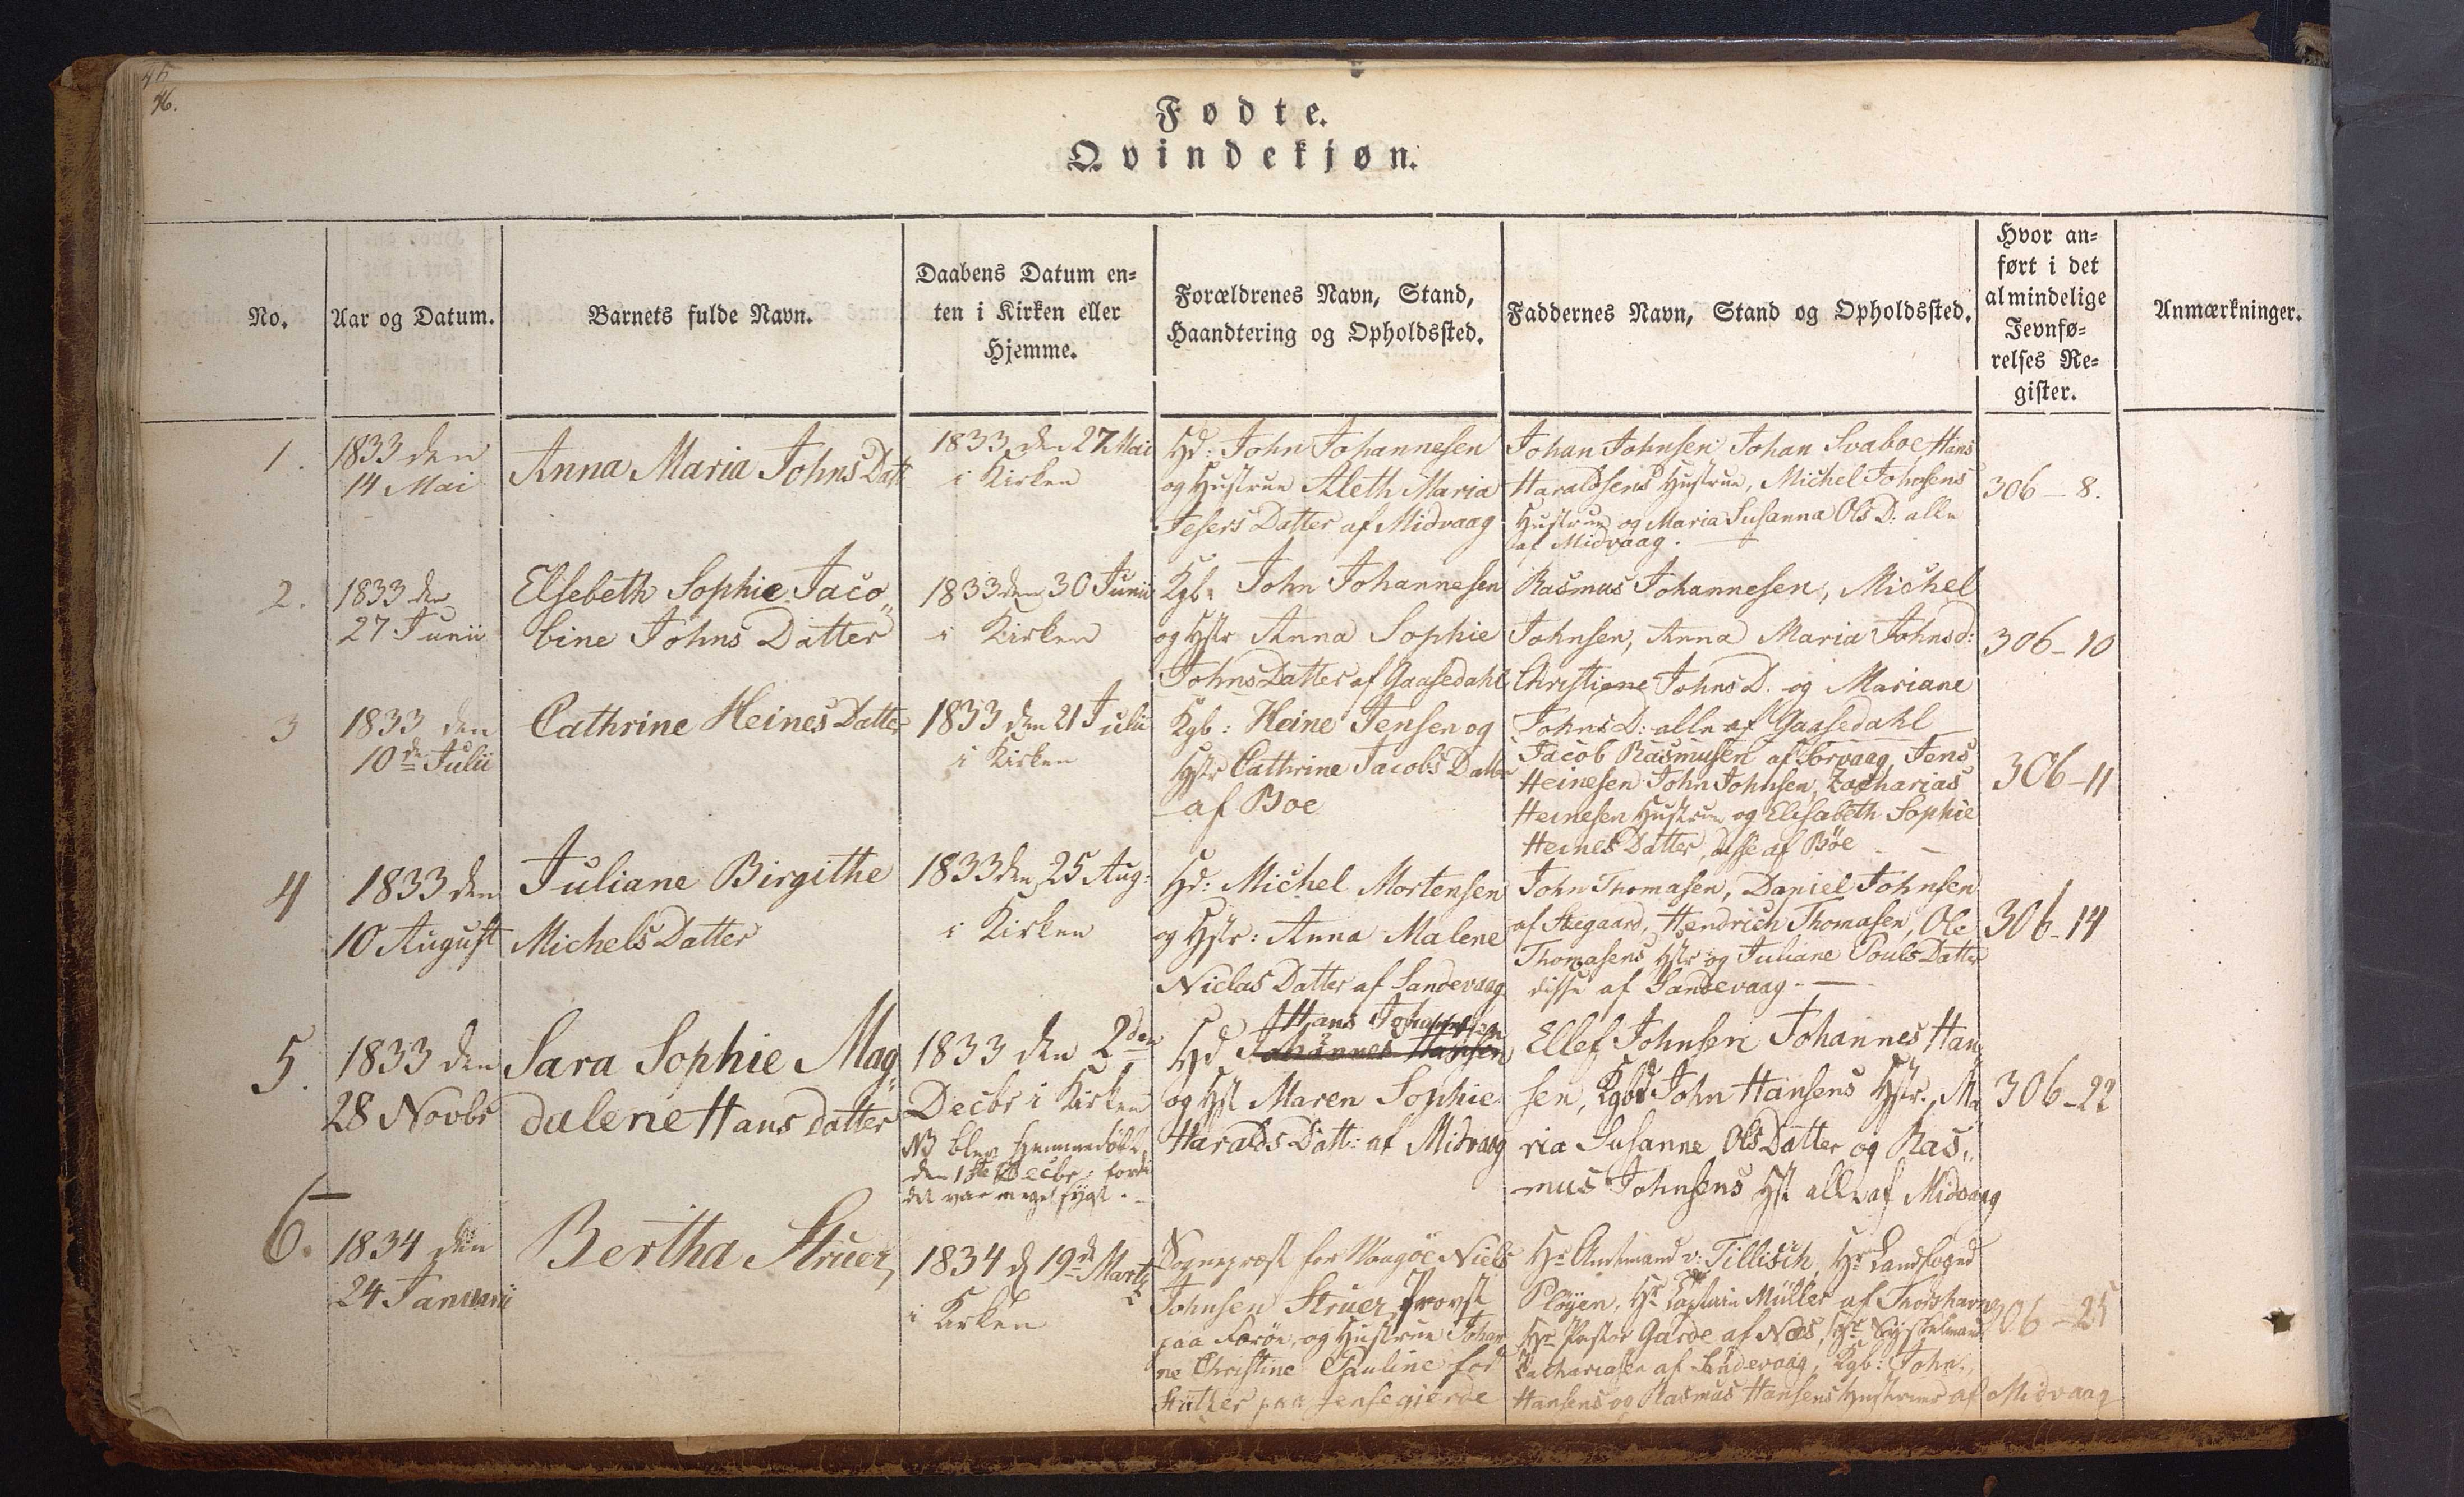 45
46.
Fødte.
Qvindekjøn.
No.
Aar og Datum.
Barnets fulde Navn.
Daabens Datum en-
ten i Kirken eller
Hjemme.
Forældrenes Navn, Stand,
Haandtering og Opholdssted.
Faddernes Navn, Stand og Opholdssted.
Hvor an-
ført i det
almindelige
Jevnfø-
relses Re-
gister.
Anmærkninger.
1.
1833 den
14 Mai
Anna Maria Johns Datt
1833 den 27 Mai
i Kirken
Hd: John Johannesen
og Hustrue Aleth Maria
Jesers Datter af Midvaag
Johan Johnsen, Johan Svaboe Hans
Haraldsens Hustrue, Michel Johnsens
Hustrue og Maria Susanna Ols D: alle
af Midvaag.
306-8.
2.
1833 den
27 Junii
Elsebeth Sophie Jaco„
bine Johns Datter
1833 den 30 Junii
i Kirken
Kgb: John Johannesen
og Hstr Anna Sophie
Johns Datter af Gaasedahl
Rasmus Johannesen, Michel
Johnsen, Anna Maria Johnsd:
Christiane Johns D. og Mariane
Johns D: alle af Gaasedahl
306-10
3
1833 den
10de Julii
Cathrine Heines Datter
1833 den 21 Julii
i Kirken
Kgb: Heine Jensen og
Hstr Cathrine Jacobs Datter
af Boe
Jacob Rasmusen af Sorvaag, Jens
Heinesen John Johnsen, Zacharias
Heinesen Hustrue og Elisabeth Sophie
Heines Datter, disse af Böe
306-11
4
1833 den
10 August
Juliane Birgithe
Michels Datter
1833 den 25 Aug:
i Kirken
Hd: Michel Mortensen
og Hstr: Anna Malene
Niclas Datter af Sandevaag
John Thomasen, Daniel Johnsen
af Stegaard, Hendrich Thomasen, Ole
Thomasens Hstr og Juliane Pouls Datter
disse af Sandevaag.
306-14
5.
1833 den
28 Novbr
Sara Sophie Mag„
dalene Hans datter
1833 den 2den
Decbr i Kirken
NB blev hjemmedöbt
den 1ste Decbr: fordi
det var meget sygt.
Hans Johannesen
Hd Johannes Hansen
og Hst Maren Sophie
Haralds Datt: af Midvaag
Ellef Johnsen Johannes Han„
sen, Kgbd John Hansens Hstr., Ma„
ria Susanne Ols Datter og Ras„
mus Johnsens Hst alle af Midvaag
306-22
6.
1834 den
24 Januarii
Bertha Struer,
1834 d 19de Marts
i Kirken
Sognepræst for Waagöe Niels
Johnsen Struer, Provst
paa Færöe, og Hustrue Johan
ne Christine Pauline fød
paa Jensegierde
Hr Amtmand v: Tillisch, Hr Landfoged
Plöyen, Hr Captain Müller af Thorshavn
Hr Pastor Garde af Næs, Hr Sysselmand
Zachariasen af Sandevaag, Kgb: John
Hansens og Rasmus Hansens Hustruer af Midvaag
306-25